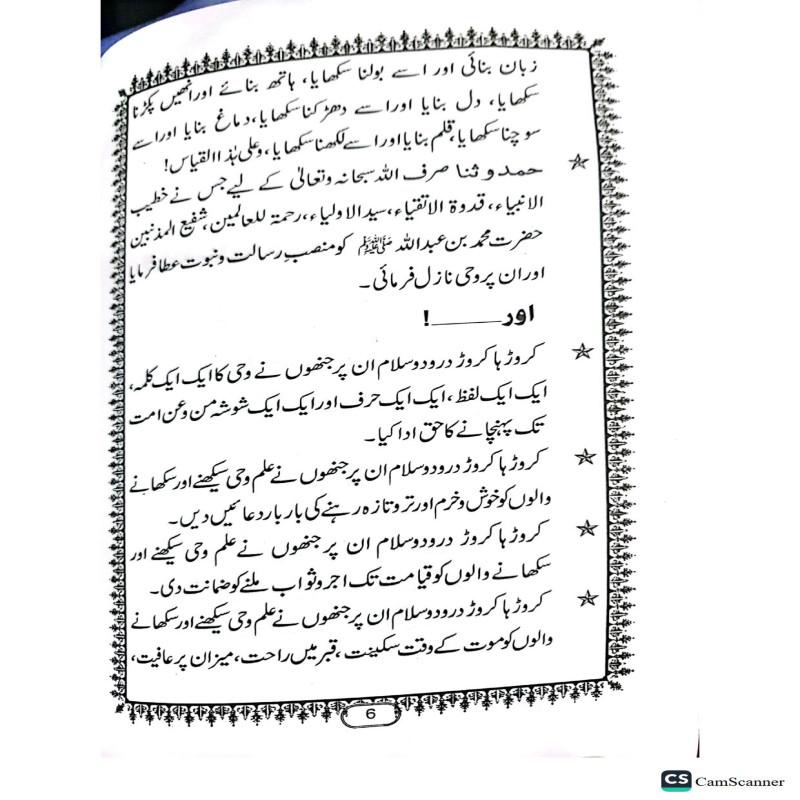 زبان بنائی اور اسے بولنا سکھایا، ہاتھ بنائے اور انھیں پکڑنا
سکھایا، دل بنایا اور اسے دھڑکنا سکھایا، دماغ بنایا اور اسے
سوچنا سکھایا، قلم بنایا اور اسے لکھنا سکھایا، وعلیٰ ہٰذا القیاس!
حمد و ثنا صرف اللہ سبحانہ وتعالیٰ کے لیے جس نے خطیب
الانبیاء، قدوۃ الاتقیاء، سید الاولیاء، رحمۃ للعالمین، شفیع المذنبین
حضرت محمد بن عبداللہ ﷺ کو منصبِ رسالت و نبوت عطا فرمایا
اور ان پر وحی نازل فرمائی۔
اور ______ !
کروڑ ہا کروڑ درود و سلام ان پر جنھوں نے وحی کا ایک ایک کلمہ،
ایک ایک لفظ، ایک ایک حرف اور ایک ایک شوشہ من و عن امت
تک پہنچانے کا حق ادا کیا۔
کروڑ ہا کروڑ درود و سلام ان پر جنھوں نے علم وحی سیکھنے اور سکھانے
والوں کو خوش و خرم اور تر و تازہ رہنے کی بار بار دعائیں دیں۔
کروڑ ہا کروڑ درود و سلام ان پر جنھوں نے علم وحی سیکھنے اور
سکھانے والوں کو قیامت تک اجر و ثواب ملنے کو ضمانت دی۔
کروڑ ہا کروڑ درود و سلام ان پر جنھوں نے علم وحی سیکھنے اور سکھانے
والوں کو موت کے وقت سکینت، قبر میں راحت، میزان پر عافیت،
6
CS CamScanner